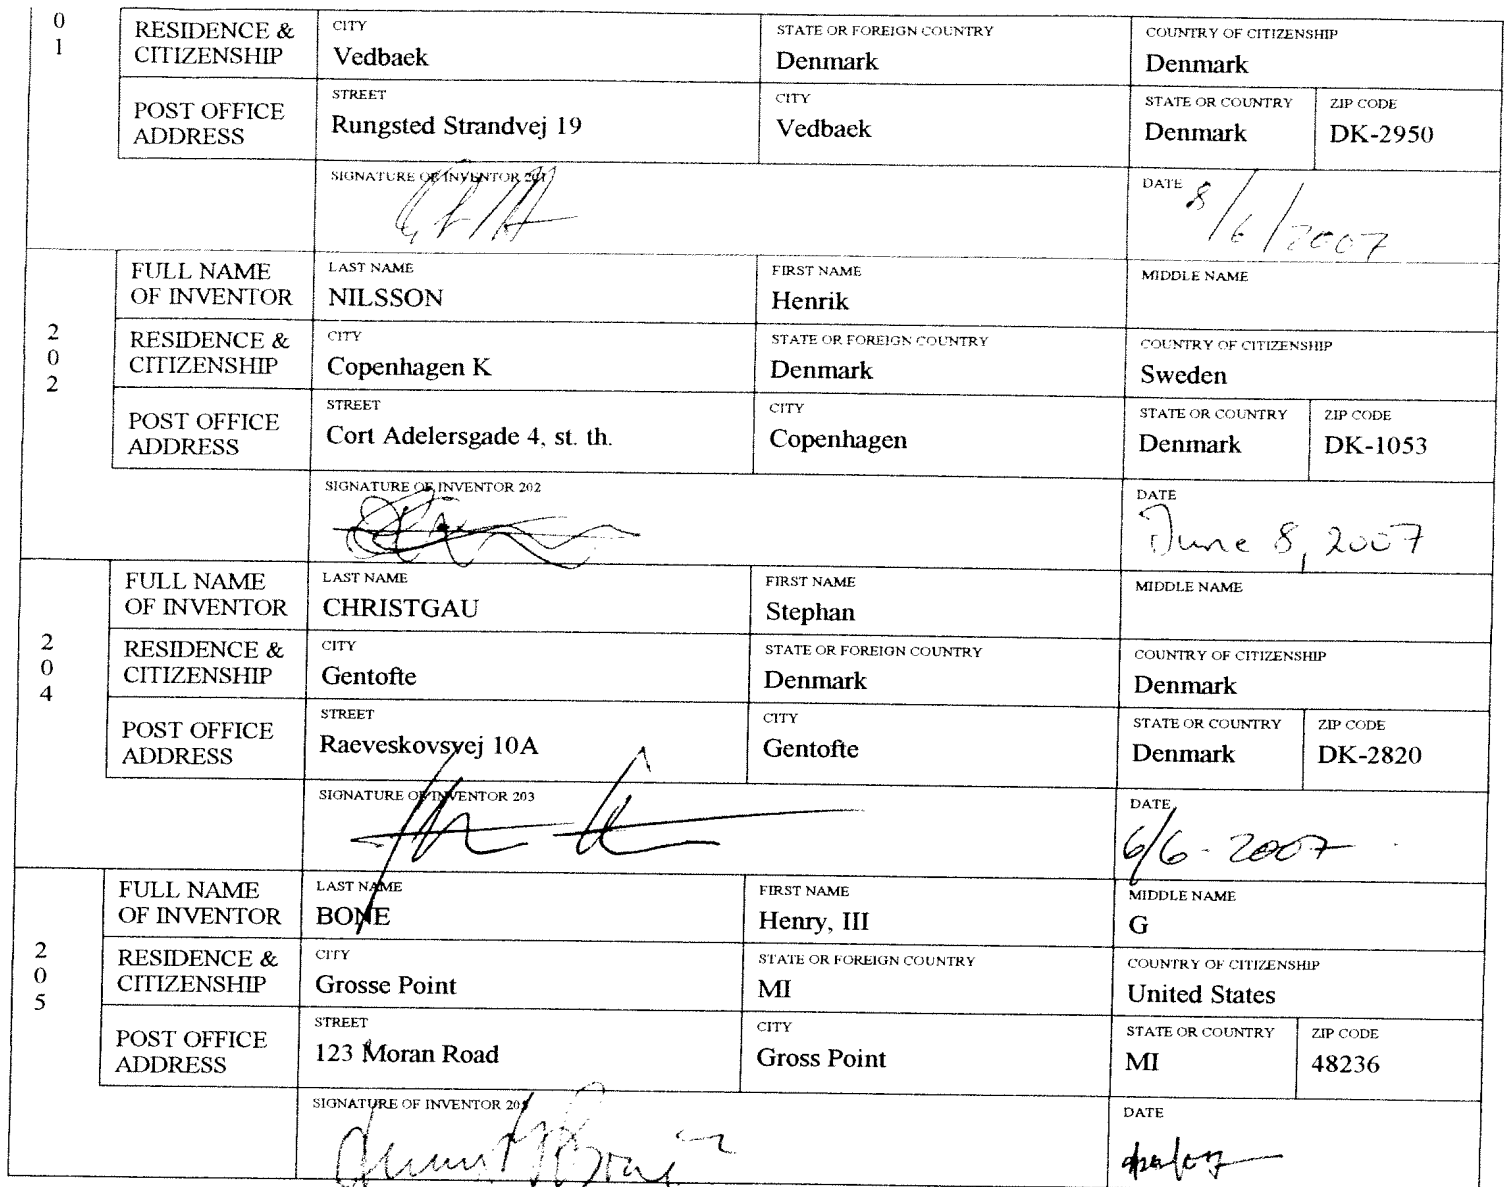 0
1
RESIDENCE & CITIZENSHIP
CITY
Vedbaek
STATE OR FOREIGN COUNTRY
Denmark
COUNTRY OF CITIZENSHIP
Denmark
POST OFFICE ADDRESS
STREET
Rungsted Strandvej 19
CITY
Vedbaek
STATE OR COUNTRY
Denmark
ZIP CODE
DK-2950
SIGNATURE OF INVENTOR 201
DATE
8/6/2007
2
0
2
FULL NAME OF INVENTOR
LAST NAME
NILSSON
FIRST NAME
Henrik
MIDDLE NAME
RESIDENCE & CITIZENSHIP
CITY
Copenhagen K
STATE OR FOREIGN COUNTRY
Denmark
COUNTRY OF CITIZENSHIP
Sweden
POST OFFICE ADDRESS
STREET
Cort Adelersgade 4, st. th.
CITY
Copenhagen
STATE OR COUNTRY
Denmark
ZIP CODE
DK-1053
SIGNATURE OF INVENTOR 202
DATE
June 8, 2007
2
0
4
FULL NAME OF INVENTOR
LAST NAME
CHRISTGAU
FIRST NAME
Stephan
MIDDLE NAME
RESIDENCE & CITIZENSHIP
CITY
Gentofte
STATE OR FOREIGN COUNTRY
Denmark
COUNTRY OF CITIZENSHIP
Denmark
POST OFFICE ADDRESS
STREET
Raeveskovsvej 10A
CITY
Gentofte
STATE OR COUNTRY
Denmark
ZIP CODE
DK-2820
SIGNATURE OF INVENTOR 203
DATE
6/6-2007
2
0
5
FULL NAME OF INVENTOR
LAST NAME
BONE
FIRST NAME
Henry, III
MIDDLE NAME
G
RESIDENCE & CITIZENSHIP
CITY
Grosse Point
STATE OR FOREIGN COUNTRY
MI
COUNTRY OF CITIZENSHIP
United States
POST OFFICE ADDRESS
STREET
123 Moran Road
CITY
Gross Point
STATE OR COUNTRY
MI
ZIP CODE
48236
SIGNATURE OF INVENTOR 205
DATE